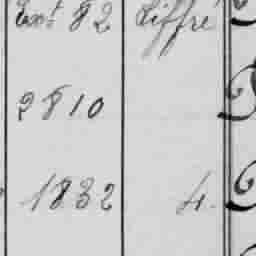 Ext 82 Liffré
2810
1832 4.